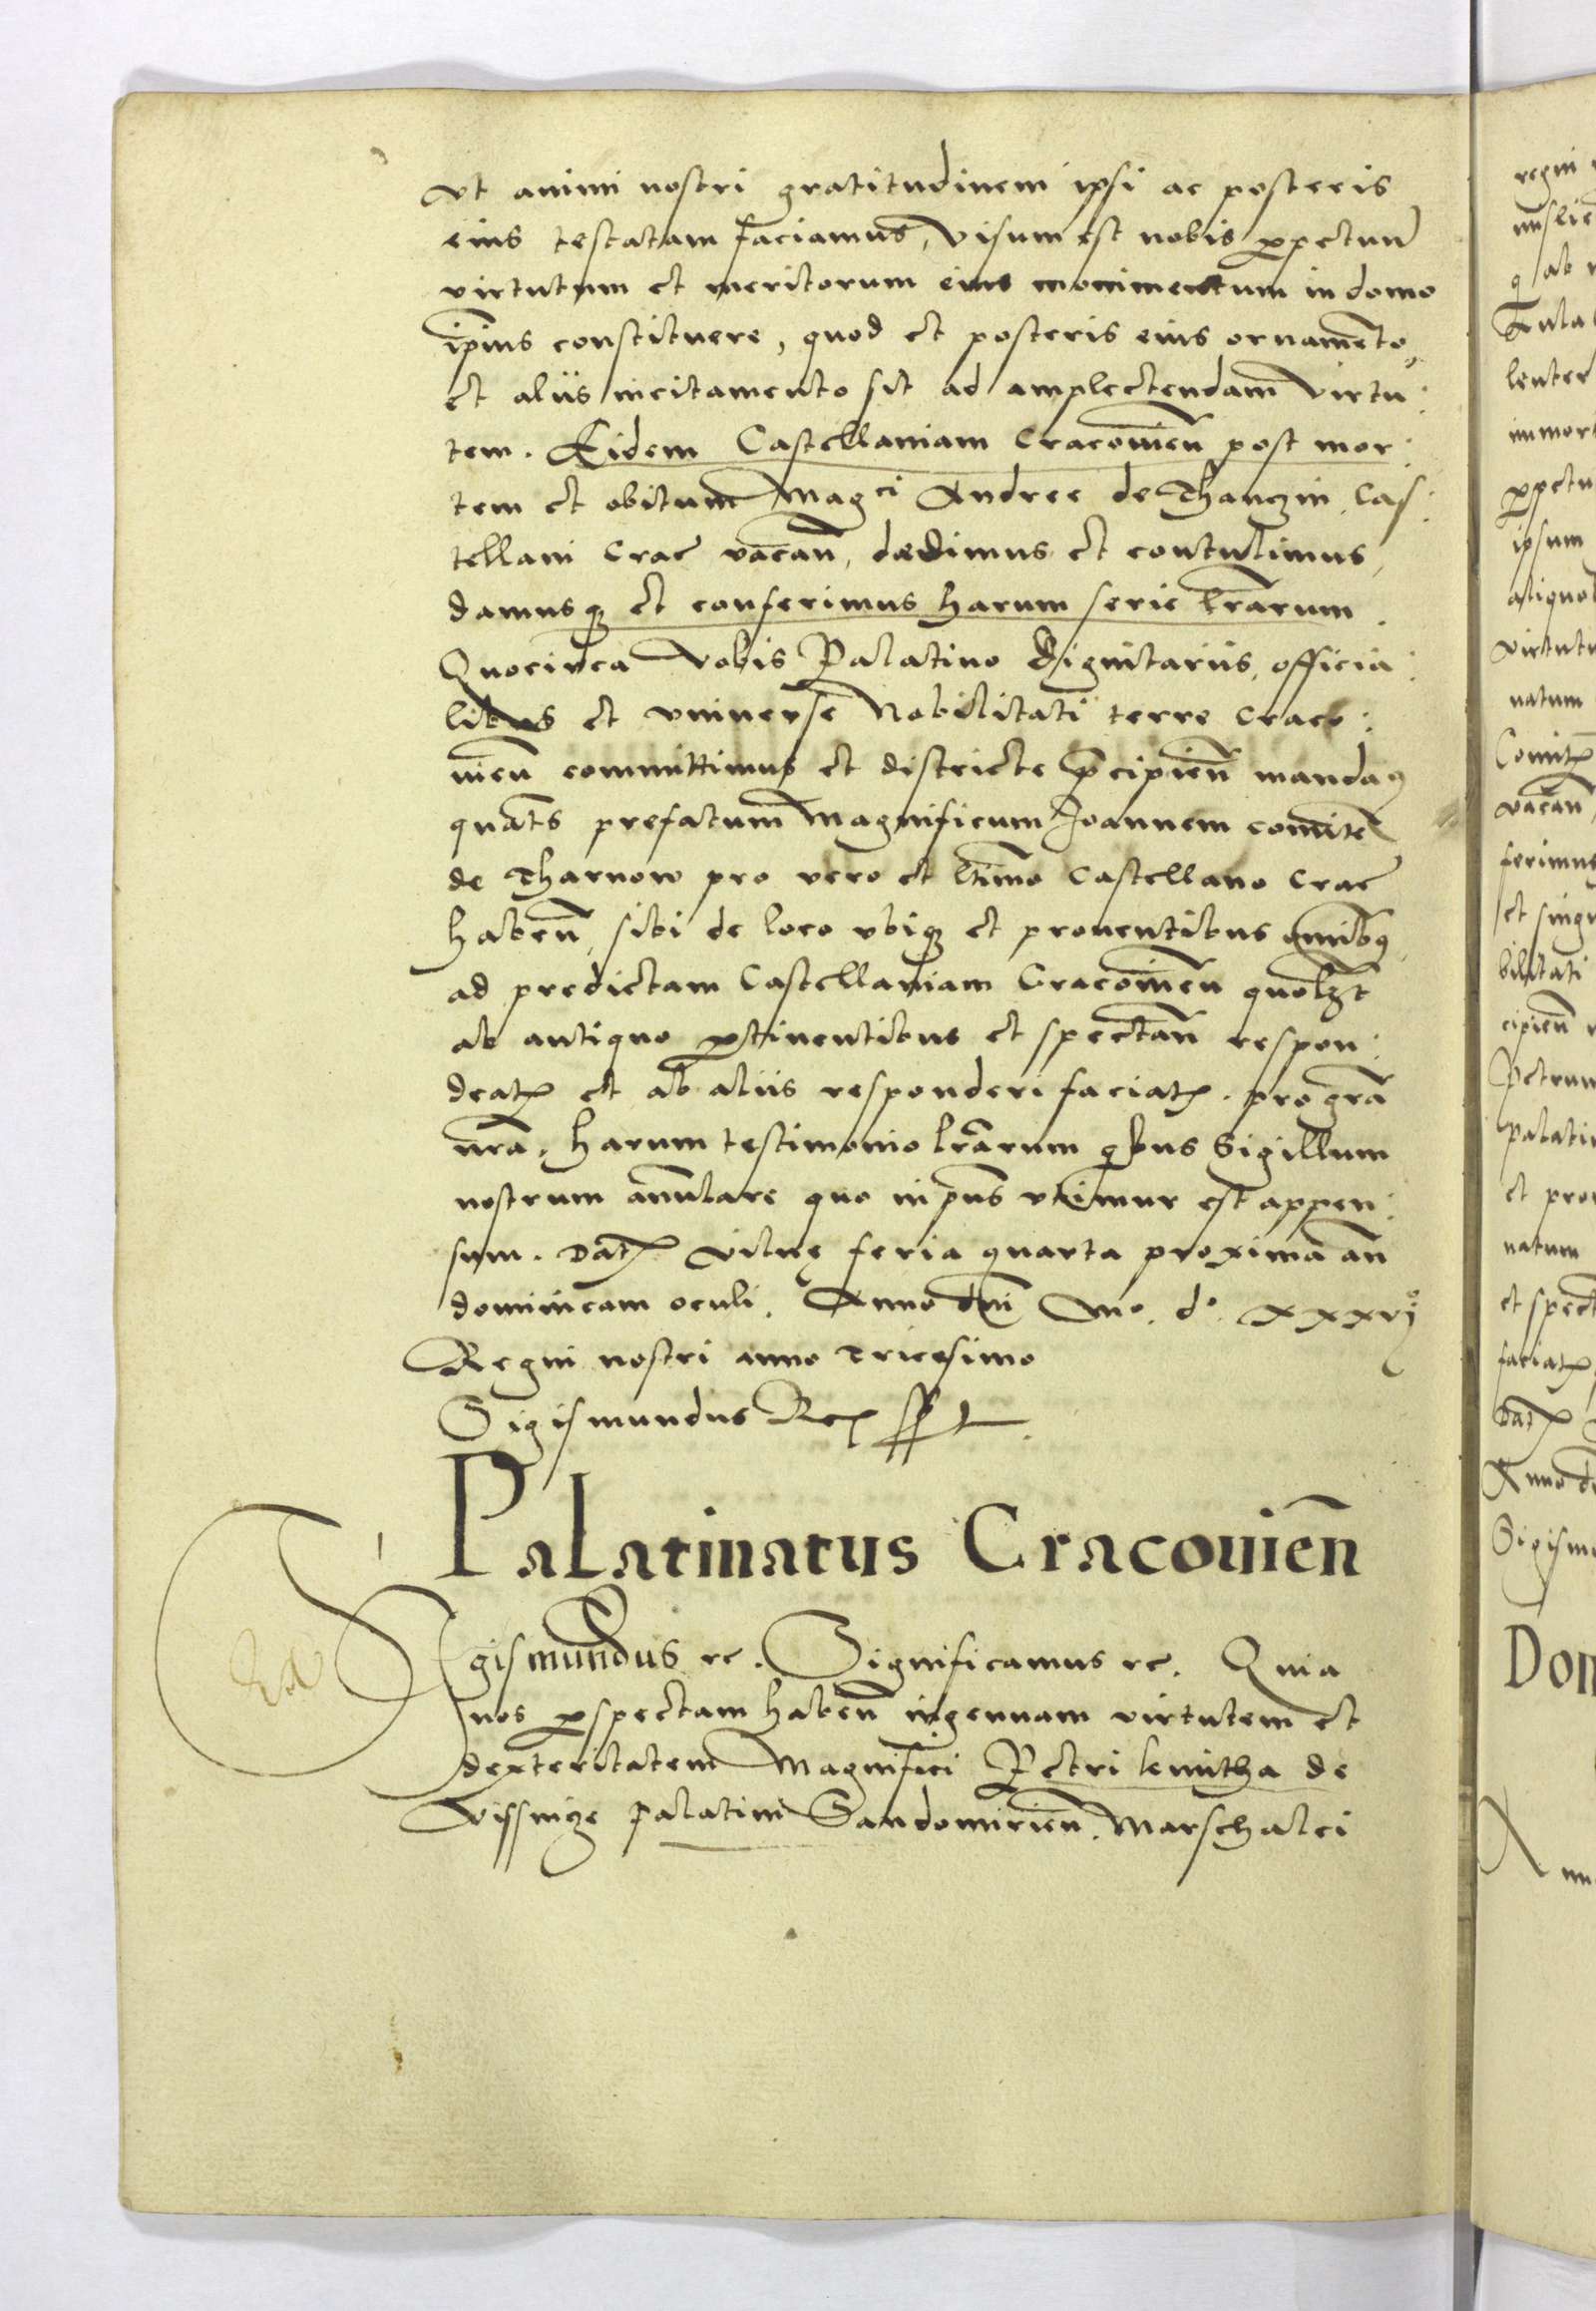 Vt animi nostri gratitudinem ipsi ac posteris
eius testatam faciamus, visum est nobis ꝑpetuũ
virtutum et meritorum eius monimentum in domo
ip̃ius constituere, quod et posteris eius ornamẽto,
et aliis incitamento sit ad amplectendam virtu:
tem. Eidem Castellaniam Cracouien̄ post mor:
tem et obitum Magci Andree de Thanczin, Cas:
tellani Crac̄ vacan̄, dedimus et contulimus,
damusqꝫ et conferimus harum serie lr̃arum.
Quocirca vobis Palatino Dignitariis, officia:
libus et vniuerse Nobilitati terre Craco:
uien̄ committimus et districte p̃cipien̄ mandaꝯ
quat̃s prefatum Magnificum Joannem comitẽ
de Tharnow pro vero et ltimo Castellano Crac̄
haben̄, sibi de loco vbiqꝫ et prouentibus omnibꝯ
ad predictam Castellaniam Cracouien̄ quolꝫt
ab antiquo ꝑtinentibus et spectan̄ respon:
deatꝭ et ab aliis responderi faciatꝭ. pro gr̃a
nr̃a. harum testimonio lr̃arum qͥbus Sigillum
nostrum annulare quo in p̃ns vtimur est appen:
sum. Datꝭ Vilnę feria quarta proxima an̄
dominicam oculi. Anno dn̄i Mº. dº. xxxvjº
Regni nostri anno Tricesimo
Sigismundus Rex sst
Palatinatus Cracouien̄
Sigismundus ꝛc. Significamus ꝛc. Quia
nos ꝑspectam haben̄ ingenuam virtutem et
dexteritatem Magnifici Petri kmitha de
Vissnicze palatini Sandomirien̄. Marschalci
regni
ab
Aula
lenter
immort
ꝑpetu
ipsum
aliquo
virtutu
natum
Comitꝭ
vacan̄
ferimus
et singu
bilitati
cipien̄
Petrum
palati
et pro
natum
et spect
faciatꝭ
Datꝭ
Anno
Sigism
Dom